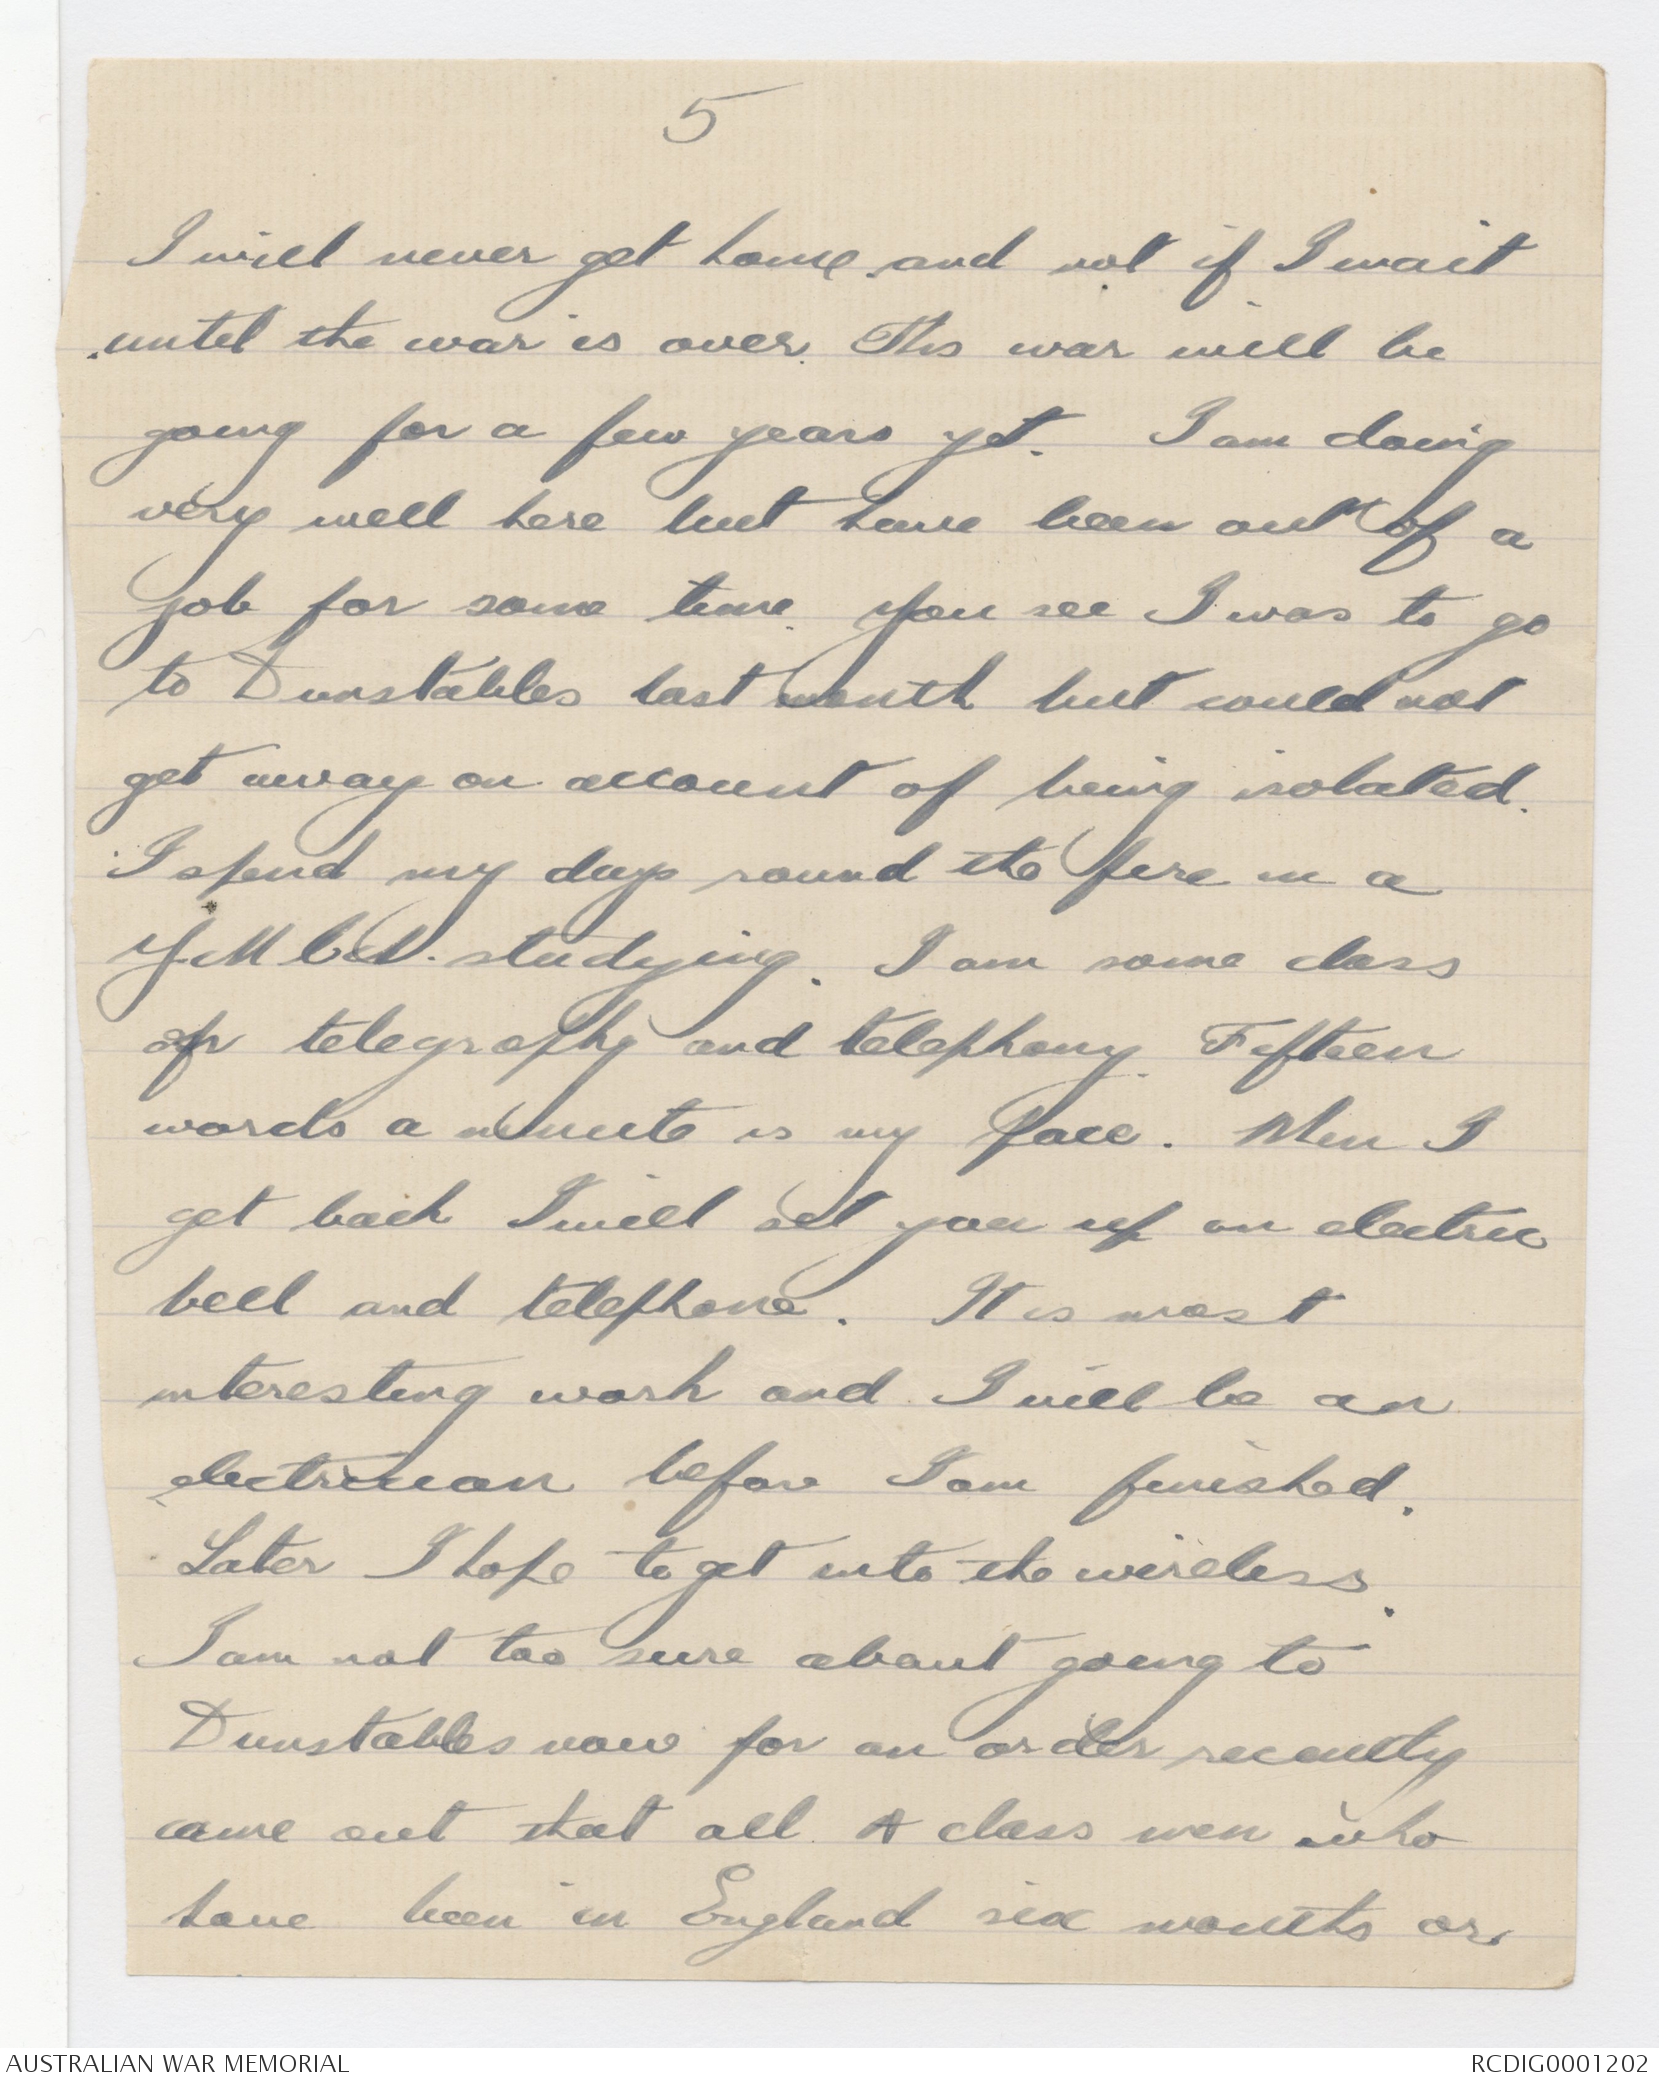 5
I will never get home and not if I wait
until the war is over. This war will be
going for a few years yet. I am doing
very well here but have been out of a
job for some time. You see I was to go
to Dunstables last month but could not
get away on account of being isolated.
I spend my days round the fire in a
Y.M.C.A. studying. I am some class
at telegraphy and telephony. Fifteen
words a minute is my pace. When I
get back I will set you up an electric
bell and telephone. It is most
interesting work and I will be an
electrician before I am finished.
Later I hope to get into the wireless.
I am not too sure about going to
Dunstables now for an order recently
came out that all A class men who
have been in England six months or
AUSTRALIAN WAR MEMORIAL
RCDIG0001202